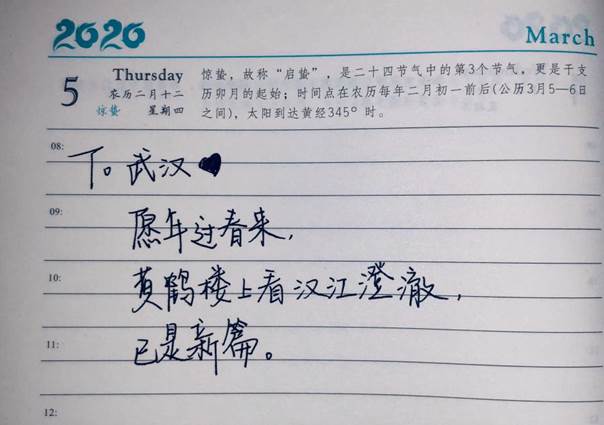 2020
March
5
Thursday
农历二月十二
惊蛰 星期四
惊蛰，故称“启蛰”，是二十四节气中的第3个节气，更是干支
历卯月的起始；时间点在农历每年二月初一前后(公历3月5—6日
之间)，太阳到达黄经345°时。
08:
To 武汉
09:
愿年过春来，
10:
黄鹤楼上看汉江澄澈，
11:
已是新篇。
12: